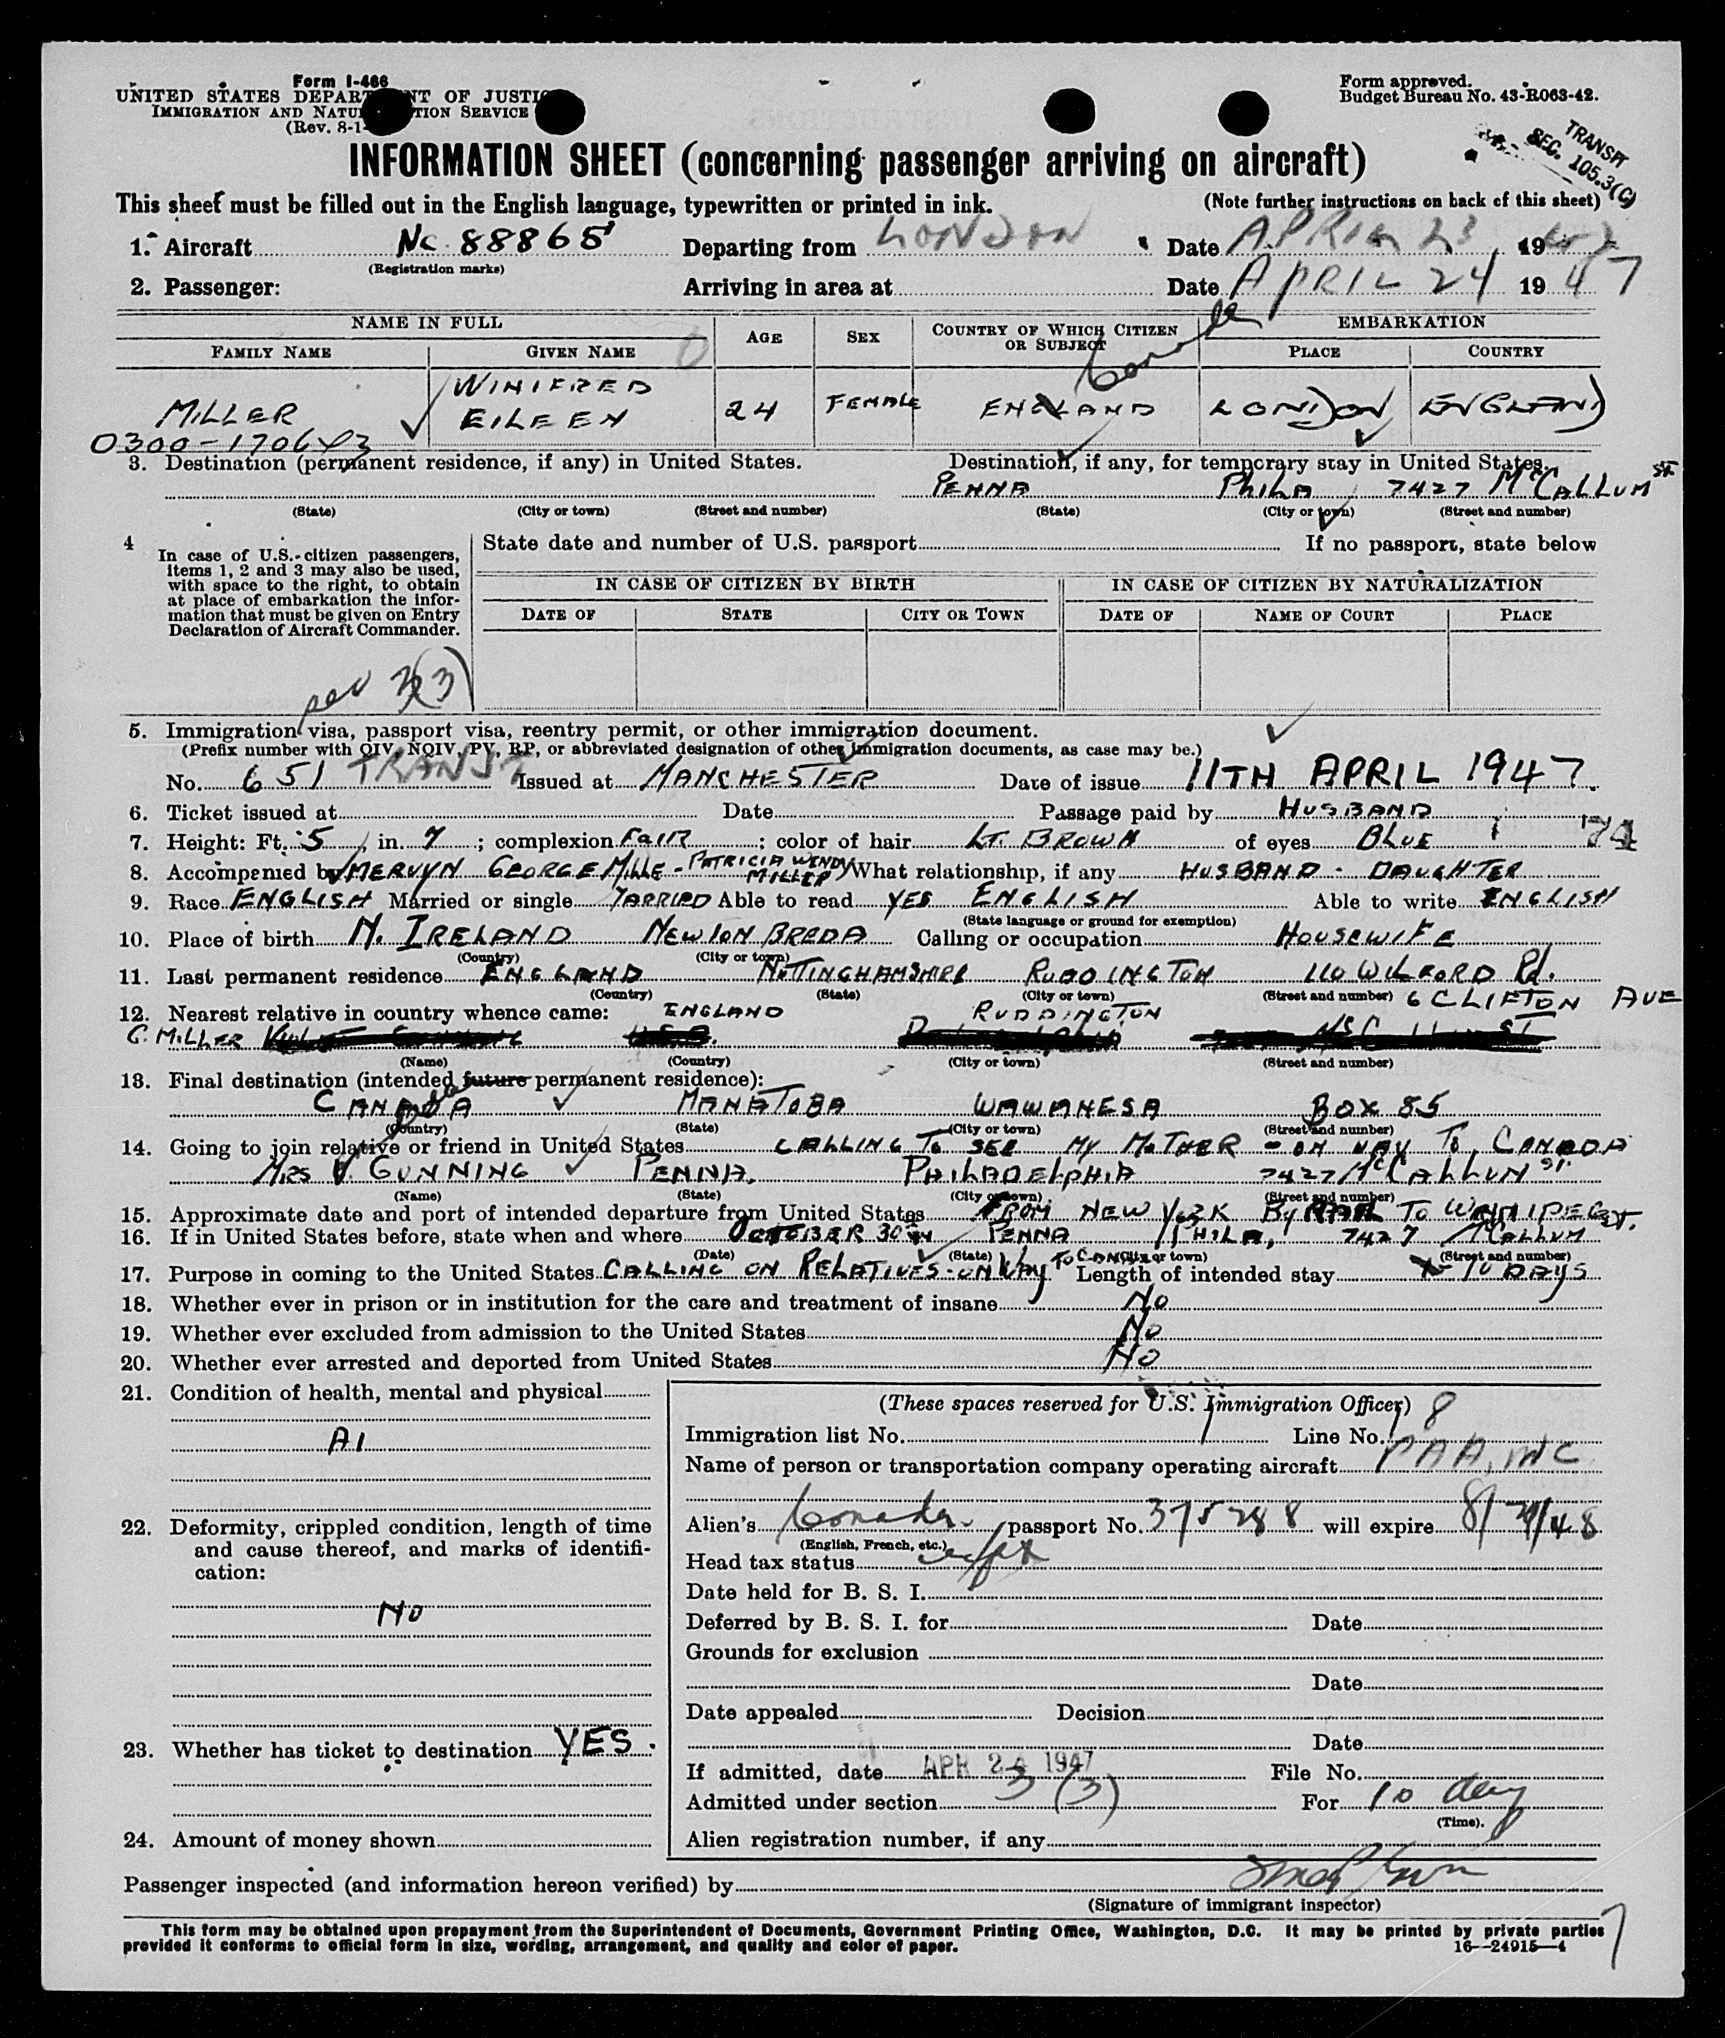 Form I-466
UNITED STATES DEPARTMENT OF JUSTICE
IMMIGRATION AND NATURALIZATION SERVICE
(Rev. 8-1-
Form approved.
Budget Bureau No. 43-R063-42.
TRANSIT
SEC. 105.3(C)
INFORMATION SHEET (concerning passenger arriving on aircraft)
This sheet must be filled out in the English language, typewritten or printed in ink. (Note further instructions on back of this sheet)
1. Aircraft NC 88865 Departing from LONDON Date APRIL 23, 1947
(Registration marks)
2. Passenger: Arriving in area at Date APRIL 24 1947
NAME IN FULL AGE SEX COUNTRY OF WHICH CITIZEN OR SUBJECT EMBARKATION
FAMILY NAME GIVEN NAME PLACE COUNTRY
Canada
MILLER WINIFRED EILEEN 24 FEMALE ENGLAND LONDON ENGLAND
0300-170643
3. Destination (permanent residence, if any) in United States. Destination, if any, for temporary stay in United States.
PENNA PHILA 7427 McCALLUM ST
(State) (City or town) (Street and number) (State) (City or town) (Street and number)
4 In case of U.S.-citizen passengers, items 1, 2 and 3 may also be used, with space to the right, to obtain at place of embarkation the information that must be given on Entry Declaration of Aircraft Commander.
State date and number of U.S. passport If no passport, state below
IN CASE OF CITIZEN BY BIRTH IN CASE OF CITIZEN BY NATURALIZATION
DATE OF STATE CITY OR TOWN DATE OF NAME OF COURT PLACE
3(3)
5. Immigration visa, passport visa, reentry permit, or other immigration document.
(Prefix number with QIV, NQIV, PV, RP, or abbreviated designation of other immigration documents, as case may be.)
No. 651 TRANSIT Issued at MANCHESTER Date of issue 11TH APRIL 1947.
6. Ticket issued at Date Passage paid by HUSBAND
7. Height: Ft. 5, in. 7; complexion FAIR; color of hair LT. BROWN of eyes BLUE 74
8. Accompanied by MERVYN GEORGE MILLE - PATRICIA WENDY MILLER What relationship, if any HUSBAND - DAUGHTER
9. Race ENGLISH Married or single MARRIED Able to read YES ENGLISH Able to write ENGLISH
(State language or ground for exemption)
10. Place of birth N. IRELAND NEWTON BREDA Calling or occupation HOUSEWIFE
(Country) (City or town)
11. Last permanent residence ENGLAND NOTTINGHAMSHIRE RUDDINGTON 110 WILFORD Rd.
(Country) (State) (City or town) (Street and number)
12. Nearest relative in country whence came: ENGLAND RUDDINGTON 6 CLIFTON AVE
G. MILLER
(Name) (Country) (City or town) (Street and number)
13. Final destination (intended future permanent residence):
CANADA MANATOBA WAWANESA BOX 85
(Country) (State) (City or town) (Street and number)
14. Going to join relative or friend in United States CALLING TO SEE MY MOTHER - ON WAY TO CANADA
MRS V. GUNNING PENNA. PHILADELPHIA 7427 McCALLUM ST.
(Name) (State) (City or town) (Street and number)
15. Approximate date and port of intended departure from United States FROM NEW YORK BY RAIL TO WINNIPEG
16. If in United States before, state when and where OCTOBER 30 PENNA PHILA, 7427 McCALLUM ST.
(Date) (State) (City or town) (Street and number)
17. Purpose in coming to the United States CALLING ON RELATIVES - ON WAY TO CANADA Length of intended stay 10 DAYS
18. Whether ever in prison or in institution for the care and treatment of insane NO
19. Whether ever excluded from admission to the United States NO
20. Whether ever arrested and deported from United States NO
21. Condition of health, mental and physical
A1
22. Deformity, crippled condition, length of time and cause thereof, and marks of identification:
NO
23. Whether has ticket to destination YES.
24. Amount of money shown
(These spaces reserved for U.S. Immigration Officer)
Immigration list No. 1 Line No. 8
Name of person or transportation company operating aircraft PAA, INC
Alien's Canada passport No. 375288 will expire 8/ /48
(English, French, etc.)
Head tax status
Date held for B. S. I.
Deferred by B. S. I. for Date
Grounds for exclusion
Date
Date appealed Decision
Date
If admitted, date APR 24 1947 File No.
Admitted under section 3 (3) For 10 day
(Time).
Alien registration number, if any
Passenger inspected (and information hereon verified) by
(Signature of immigrant inspector)
This form may be obtained upon prepayment from the Superintendent of Documents, Government Printing Office, Washington, D.C. It may be printed by private parties
provided it conforms to official form in size, wording, arrangement, and quality and color of paper. 16--24915--4